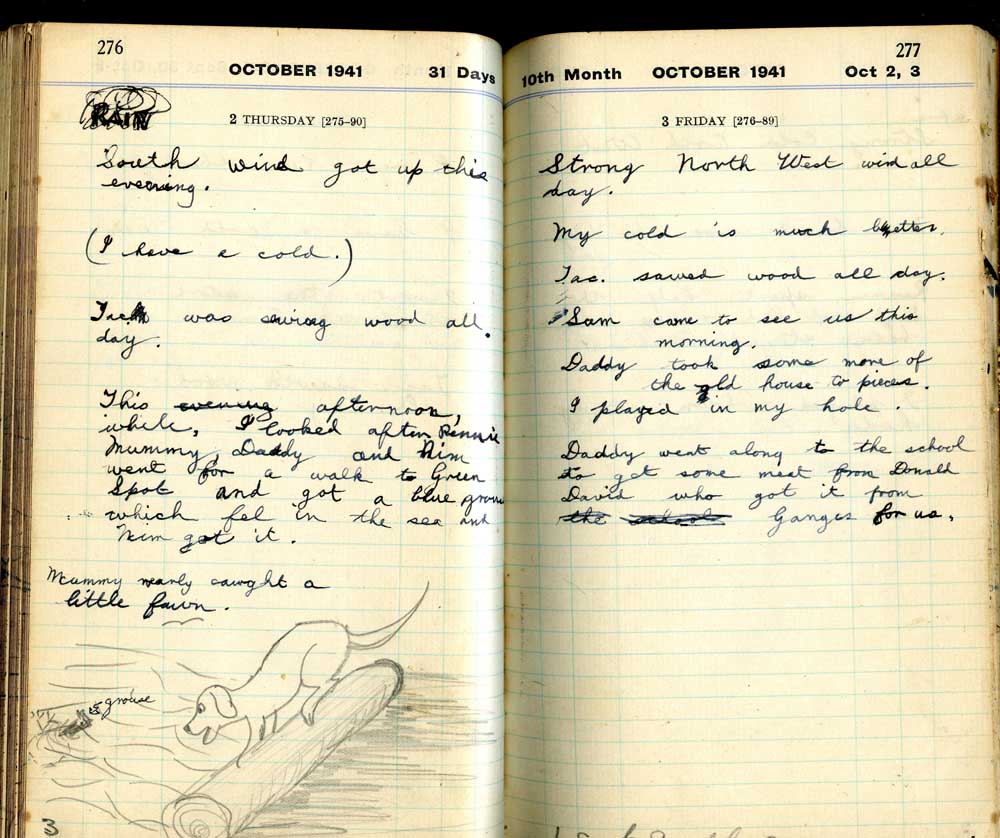 276
OCTOBER 1941 31 Days
RAIN
2 THURSDAY [275-90]
South wind got up this
evening.
(I have a cold.)
Jack was sawing wood all
day.
This evening afternoon,
while, I looked after Rennie
Mummy, Daddy and Nim
went for a walk to Green
Spot and got a blue grouse
which fel in the sea and
Nim got it.
Mummy nearly caught a
little fawn.
grouse
3
277
10th Month OCTOBER 1941 Oct 2, 3
3 FRIDAY [276-89]
Strong North West wind all
day.
My cold is much better.
Jac. sawed wood all day.
Sam came to see us this
morning.
Daddy took some more of
the old house to pieces.
I played in my hole.
Daddy went along to the school
to get some meat from Donald
David who got it from
the school Ganges for us.